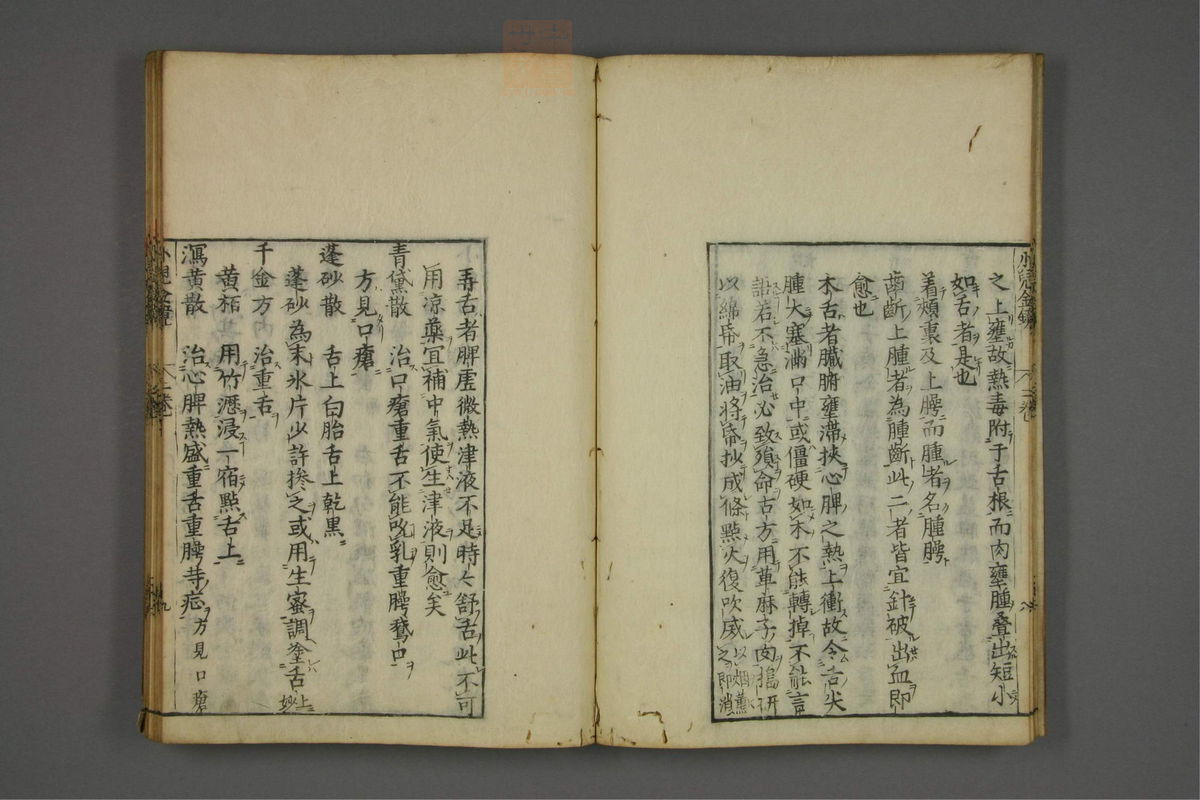 之上壅故熱毒附于舌根而肉壅腫叠出短小
如舌者是也
着頰裏及上腭而腫者名腫腭
齒斷上腫者為腫斷此二者皆宜針破出血即
愈也
木舌者臟腑壅滯挾心脾之熱上衝故令舌尖
腫大塞滿口中或僵硬如木不能轉掉不能言
語若不急治必致殞命古方用萆麻子肉搗研
以綿帋取油將帋抄成條點火復吹威之以烟薰即消
弄舌者脾虛微熱津液不足時々舒舌此不可
用凉藥宜補中氣使生津液則愈矣
青黛散 治口瘡重舌不能吮乳重腭鵞口
方見口瘡
蓬砂散 舌上白胎舌上乾黑
蓬砂為末氷片少許摻之或用生蜜調塗舌上妙
千金方 治重舌
黄栢 用竹瀝浸一宿點舌上
瀉黄散 治心脾熱盛重舌重腭等症方見口瘡